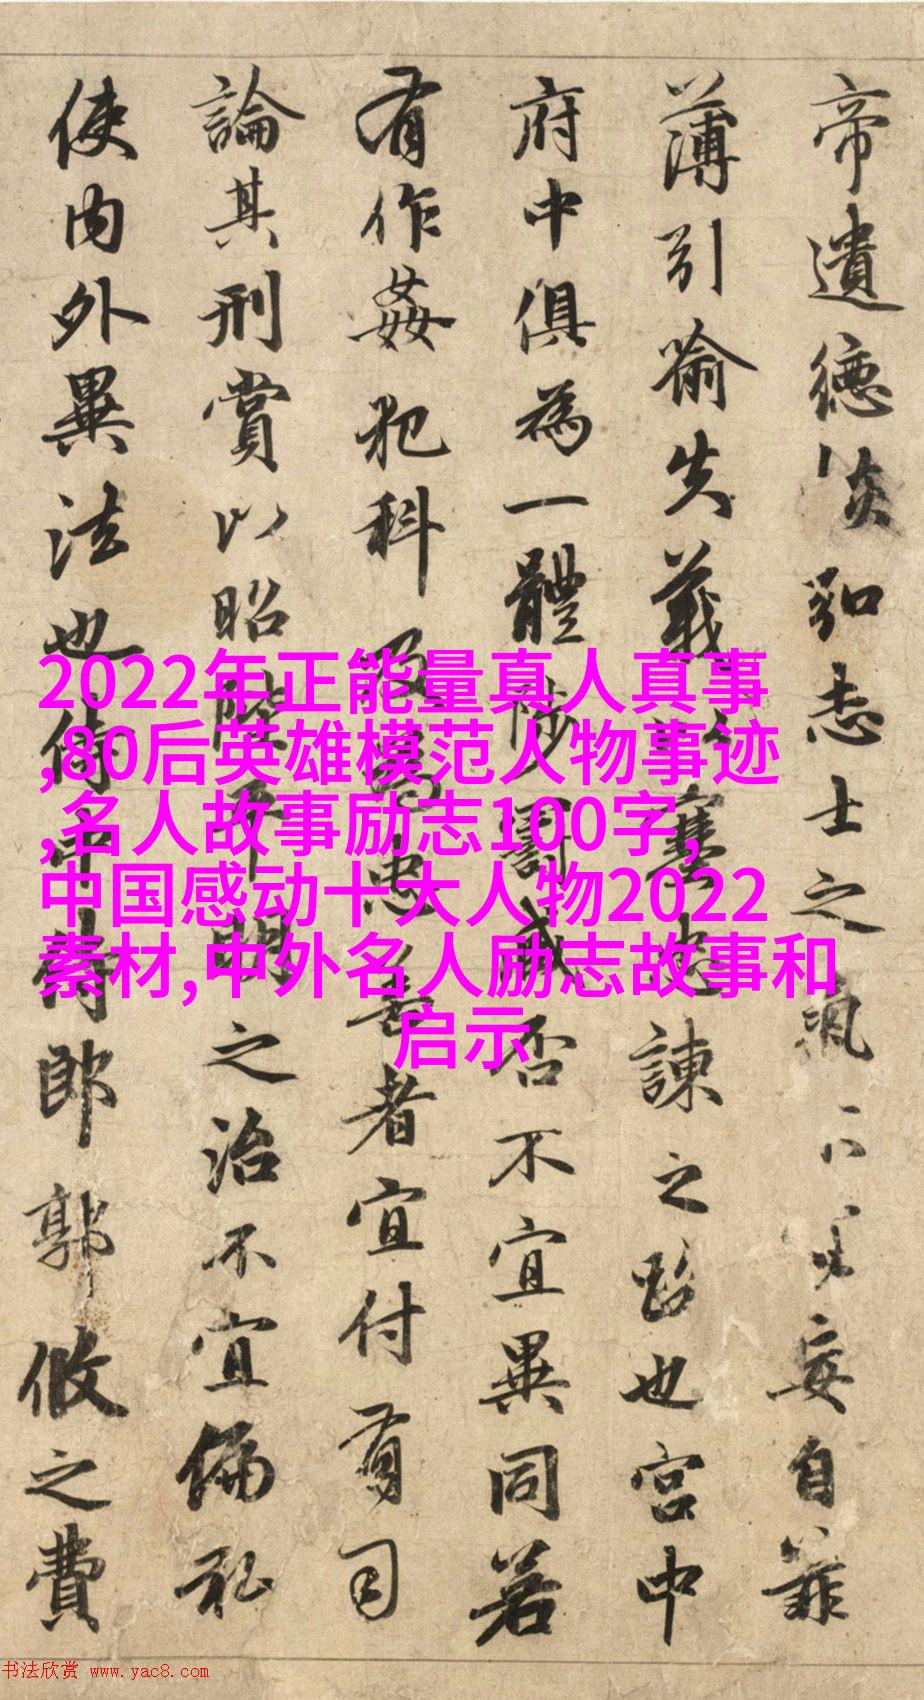 帝遺德恢弘志士之氣不妄自菲
薄引喻失義以塞忠諫之路也宮中
府中俱為一體陟罰臧否不宜異同若
有作姦犯科及為忠善者宜付有司
論其刑賞以昭陛下平明之治不宜偏私
使內外異法也侍中侍郎郭攸之費
2022年正能量真人真事
,80后英雄模范人物事迹
,名人故事励志100字,
中国感动十大人物2022
素材,中外名人励志故事和
启示
书法欣赏 www.yac8.com